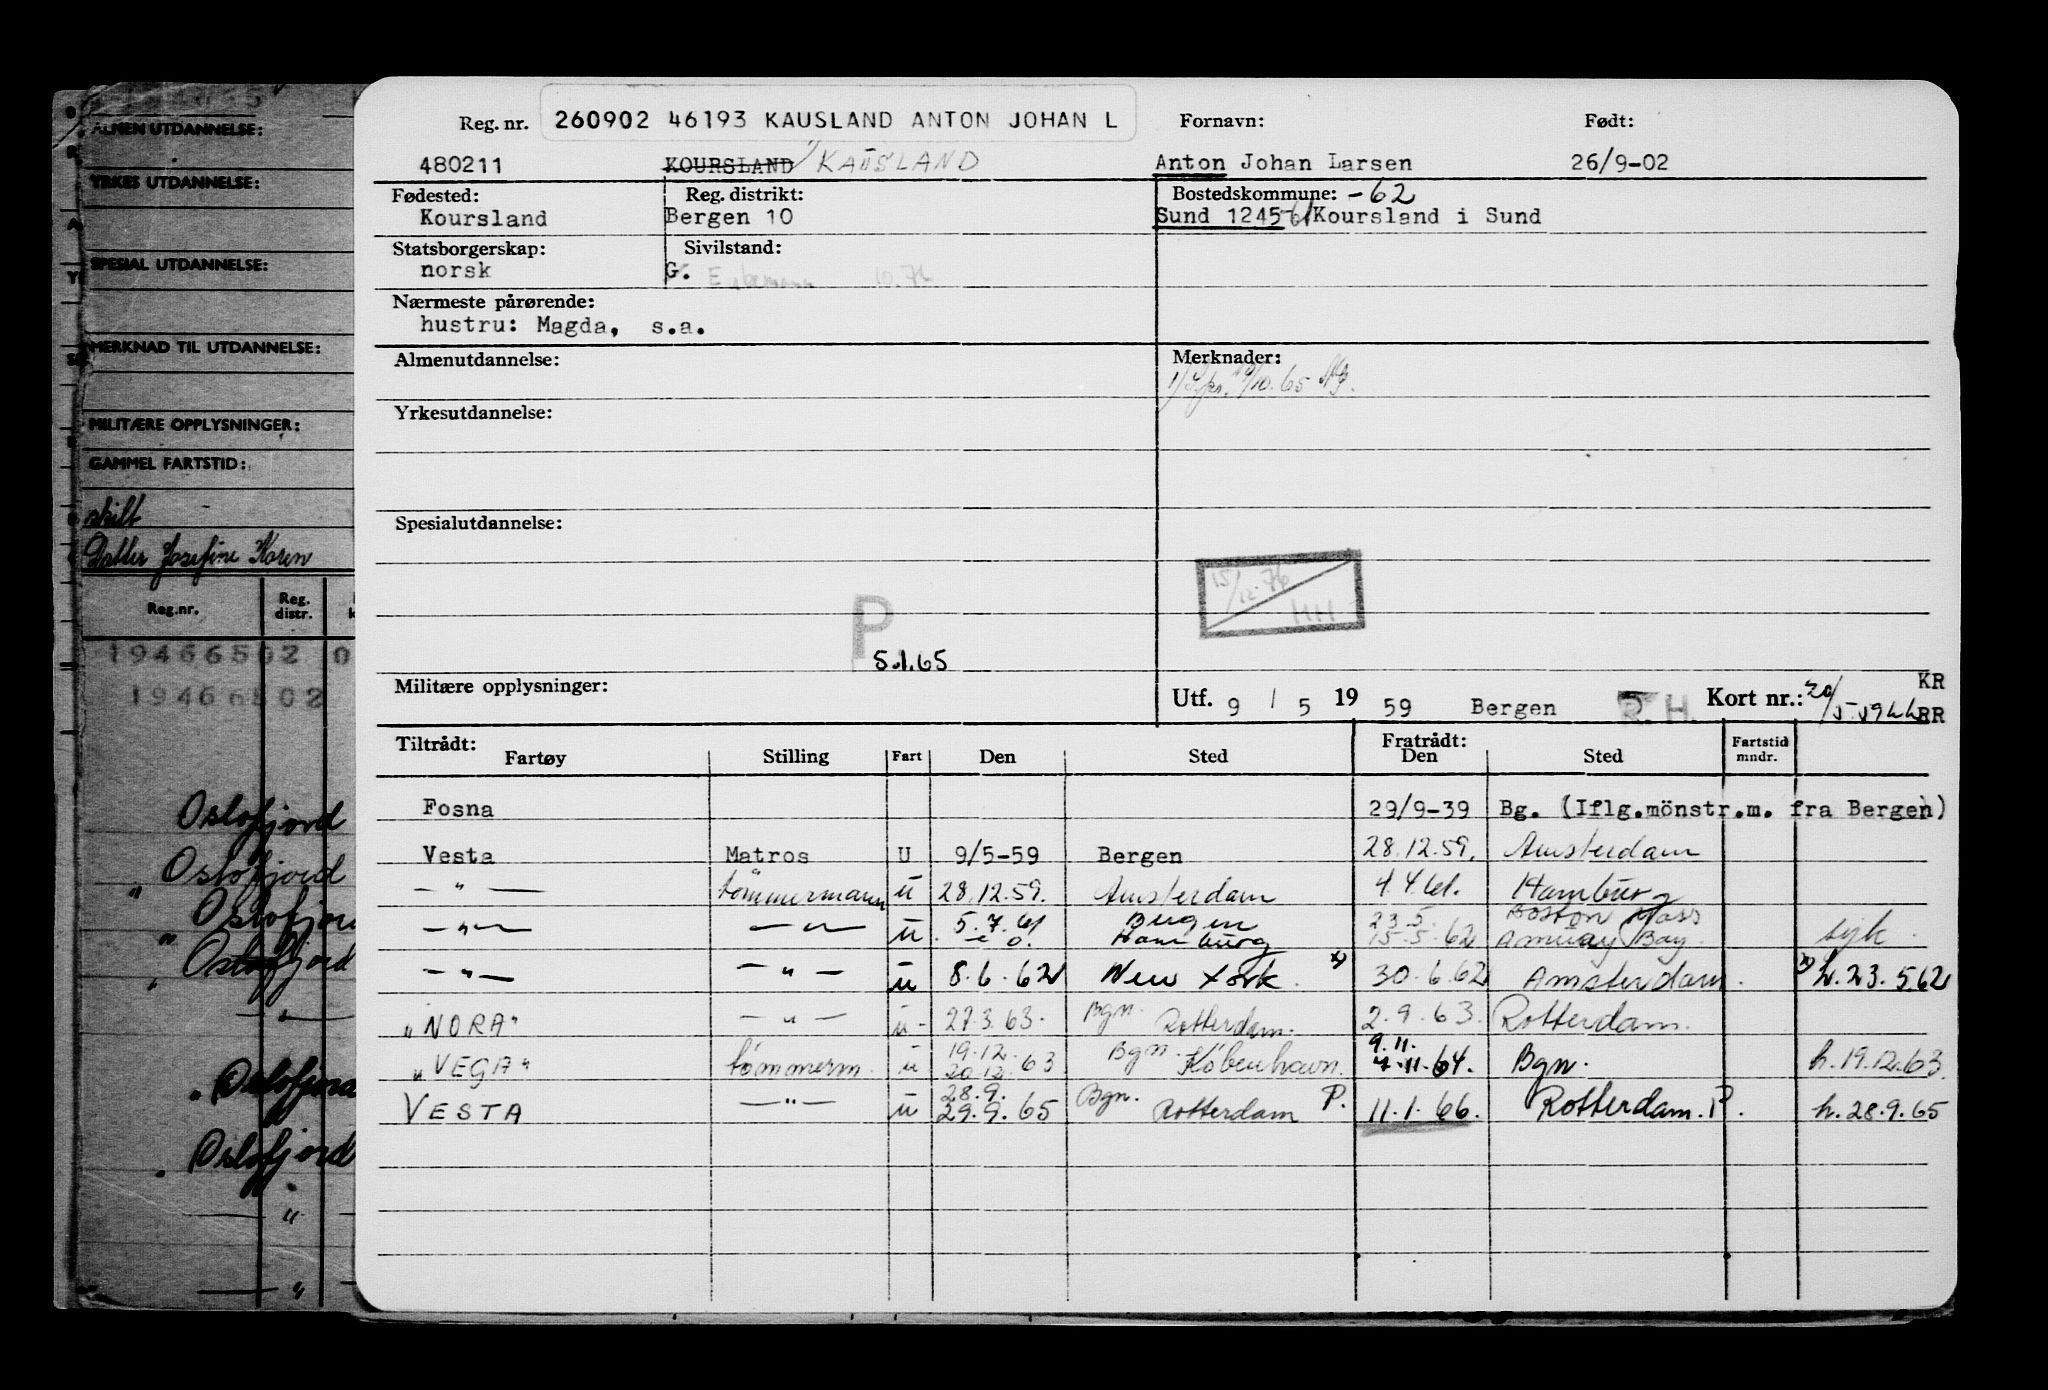 ALMEN UTDANNELSE:
YRKES UTDANNELSE:
SPESIAL UTDANNELSE:
MERKNAD TIL UTDANNELSE:
MILITÆRE OPPLYSNINGER:
GAMMEL FARTSTID:
skilt
Datter Josefine Karen
Reg.nr. Reg. distr.
19466502 0
Oslofjord
Oslofjord
" Oslofjord
" Oslofjord
"
Oslofjord
Oslofjord
"
"
Reg. nr. 260902 46193 KAUSLAND ANTON JOHAN L Fornavn: Født:
480211 KOURSLAND KAUSLAND Anton Johan Larsen 26/9-02
Fødested: Reg. distrikt: Bostedskommune: -62
Koursland Bergen 10 Sund 1245-61 Koursland i Sund
Statsborgerskap: Sivilstand:
norsk G. 10.76
Nærmeste pårørende:
hustru: Magda, s.a.
Almenutdannelse: Merknader:
10.65
Yrkesutdannelse:
Spesialutdannelse:
15/12.76
HH
P
5.1.65
Militære opplysninger: Utf. 9 / 5 19 59 Bergen R.H. Kort nr.: KR
RR
Tiltrådt: Fratrådt:
Fartøy Stilling Fart Den Sted Den Sted Fartstid mndr.
Fosna 29/9-39 Bg. (Iflg.mönstr.m. fra Bergen)
Vesta Matros U 9/5-59 Bergen 28.12.59. Amsterdam
— " — tömmermann u 28.12.59. Amsterdam 4.4.61. Hamburg
— " — — " — u 5.7.61 Bergen 23.5. Boston Mass
Hamburg 15.5.62 Amuay Bay. syk.
— " — — " — u 8.6.62 New York. x) 30.6.62 Amsterdam. x) h.23.5.62
"NORA" — " — u. 27.3.63. Bgn. Rotterdam. 2.9.63. Rotterdam.
"VEGA" tömmerm. u 19.12. 20.12.63 Bgn. København. 9.11. 7.11.64. Bgn. h.19.12.63.
VESTA — " — u 28.9. 29.9.65 Bgn. Rotterdam P. 11.1.66. Rotterdam. P. h.28.9.65